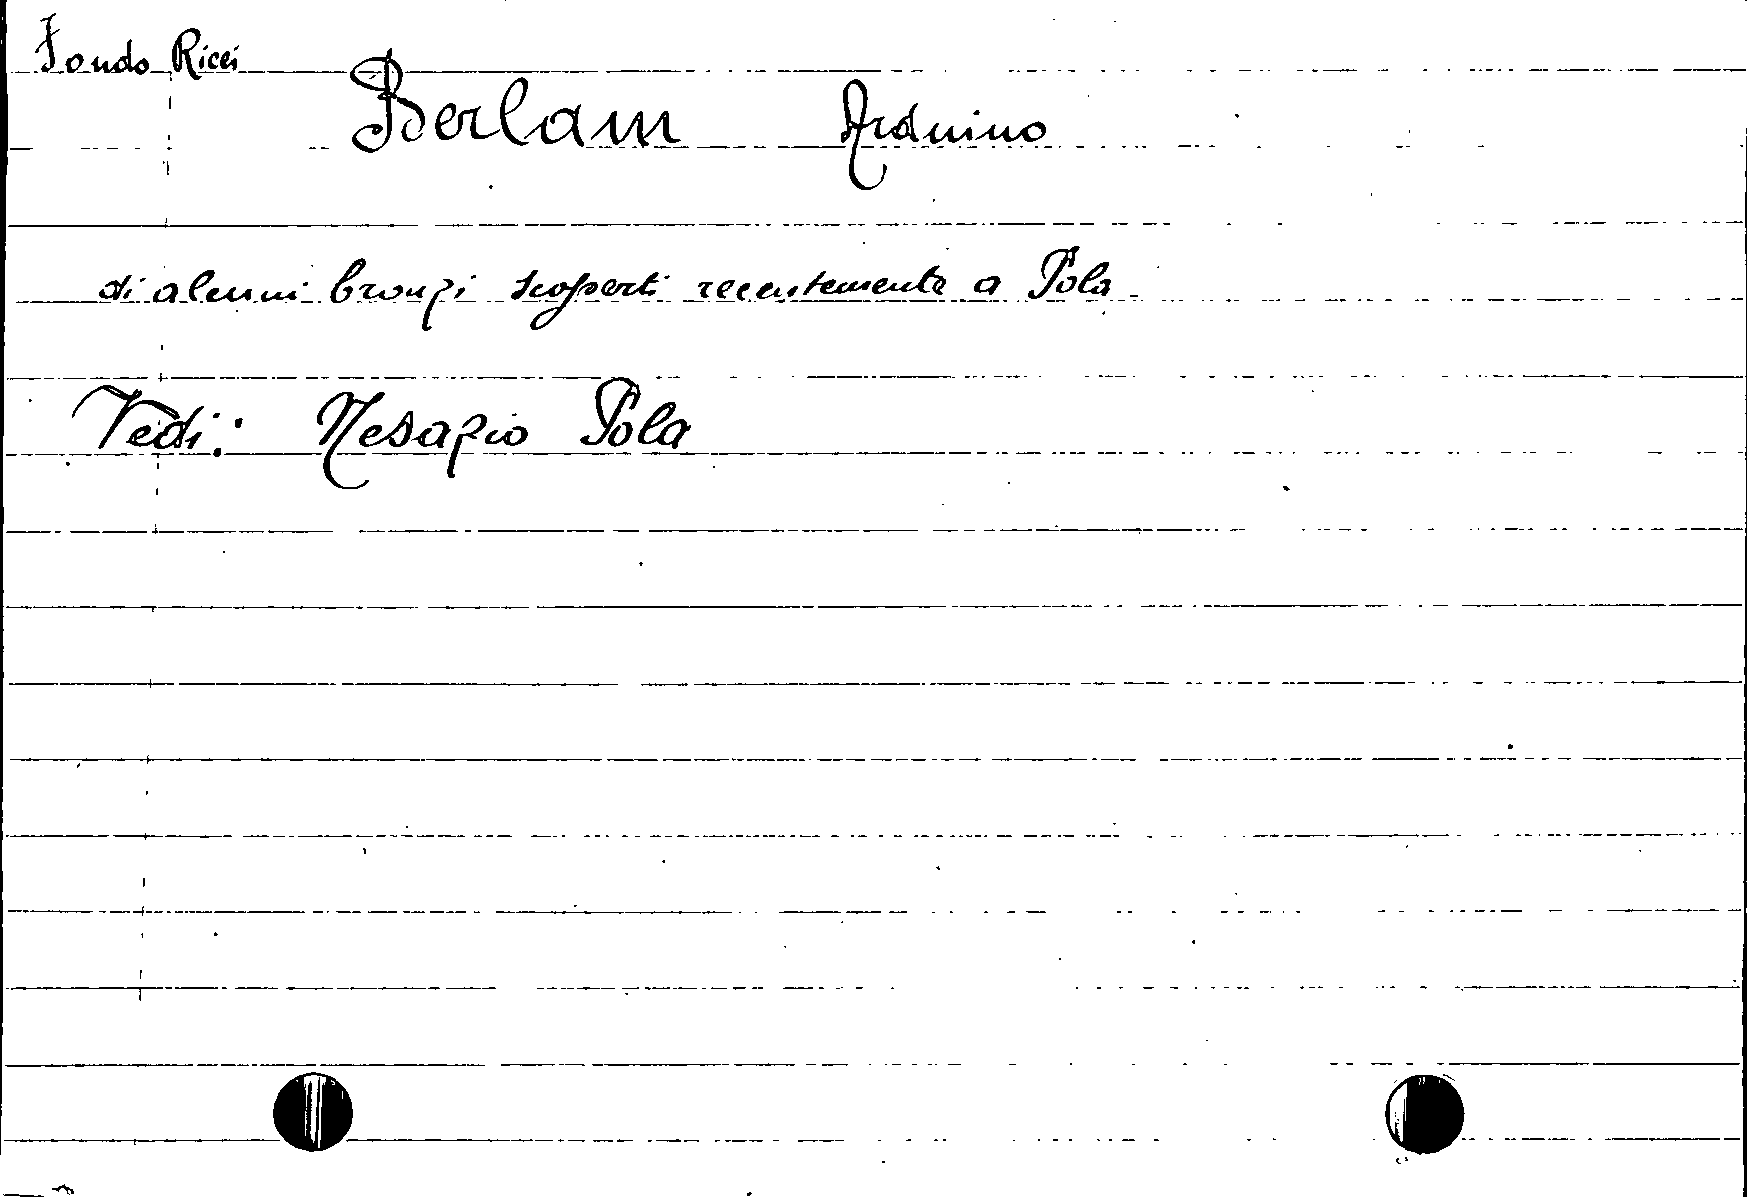 Fondo Ricci
Berlam Arduino
di alcuni bronzi scoperti recentemente a Pola
Vedi: Nesazio Pola